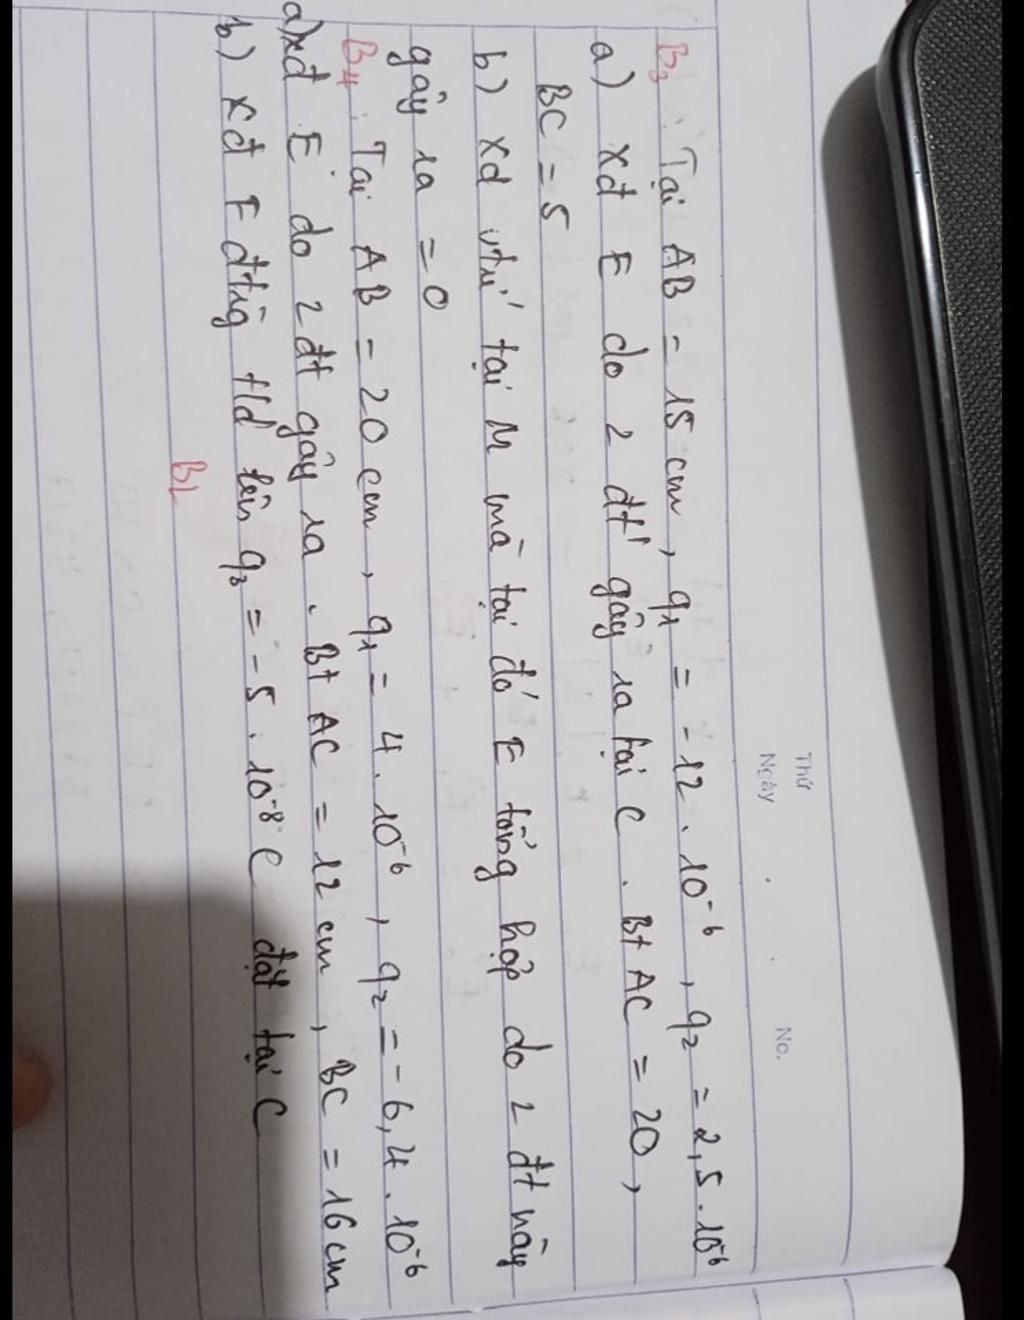 Thứ
Ngày
No.
B3. Tại AB = 15 cm, q1 = -12 . 10^-6, q2 = 2,5 . 10^-6
a) xđ E do 2 đt gây ra tại C. Bt AC = 20,
BC = 5
b) xđ vtrí tại M mà tại đó E tổng hợp do 2 đt này
gây ra = 0
B4. Tại AB = 20 cm, q1 = 4 . 10^-6, q2 = -6,4 . 10^-6
a) xđ E do 2 đt gây ra. Bt AC = 12 cm, BC = 16 cm
b) xđ F đtrg t/d lên q3 = -5 . 10^-8 C đặt tại C
BL